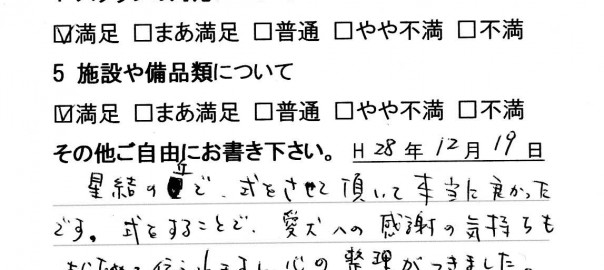 ☑満足 □まあ満足 □普通 □やや不満 □不満
5 施設や備品類について
☑満足 □まあ満足 □普通 □やや不満 □不満
その他ご自由にお書き下さい。 H 28 年 12 月 19 日
星結の 丘 で、式をさせて頂いて本当に良かった
です。式をすることで、愛犬への感謝の気持ちも
心の整理ができました。